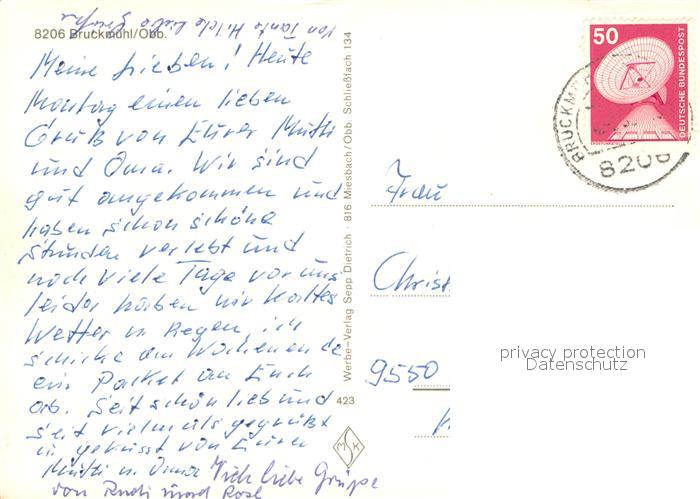 8206 Bruckmühl/Obb.
Von Tante Hilde liebe Grüße
Meine Lieben! Heute
Montag einen lieben
Gruß von Eurer Mutti
und Oma. Wir sind
gut angekommen und
haben schon schöne
Stunden verlebt und
noch viele Tage vor uns
leider haben wir kaltes
Wetter u. Regen, ich
schicke am Wochenende
ein Packet an Euch
ab. Seit schön lieb und
seit vielmals gegrüßt
u. geküsst von Eurer
Mutti u. Oma Viele liebe Grüße
von Rudi und Rosl
Werbe-Verlag Sepp Dietrich · 816 Miesbach/Obb. Schließfach 134
423
MSK
50
DEUTSCHE BUNDESPOST
BRUCKM
8206
Frau
Christ
9550
privacy protection
Datenschutz